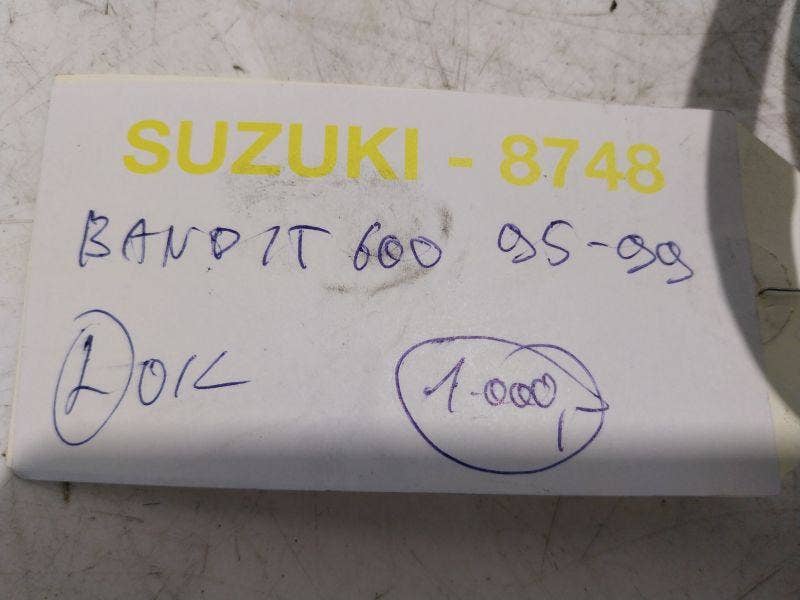 SUZUKI - 8748
BANDIT 600 95-99
L OK 1.000,-